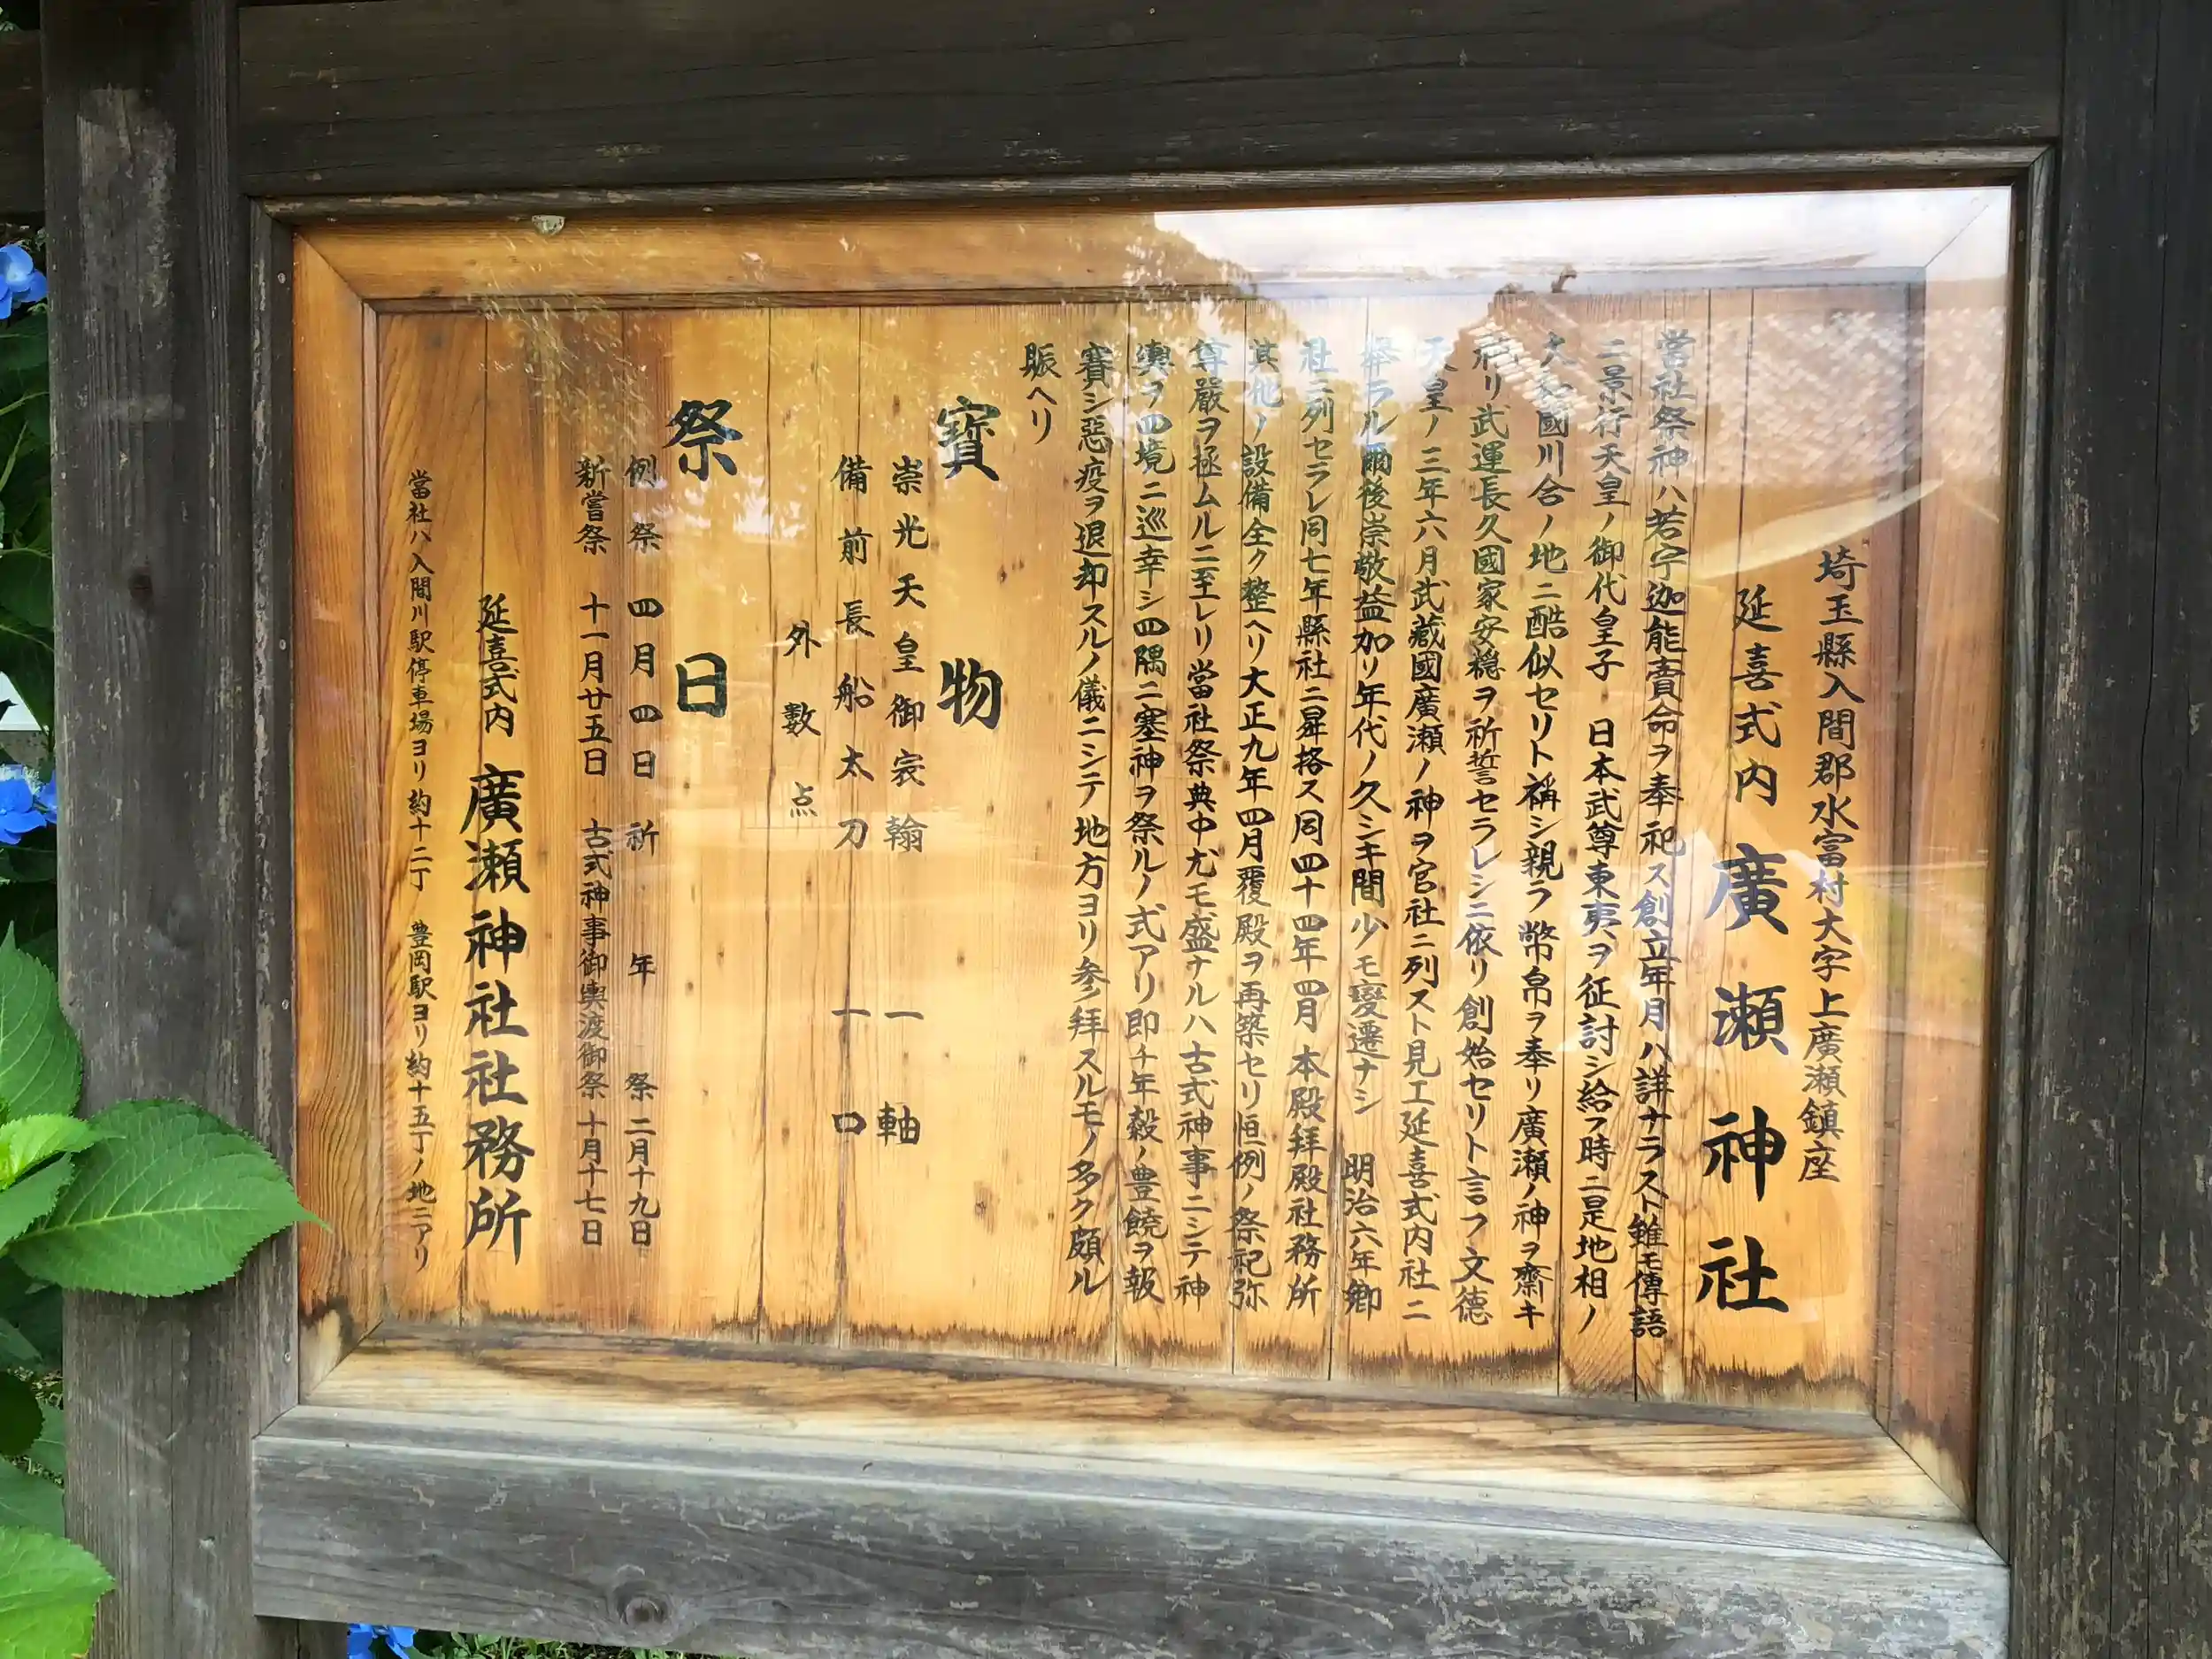 埼玉縣入間郡水富村大字上廣瀬鎮座
延喜式内 廣瀬神社
當社祭神ハ若宇迦能賣命ヲ奉祀ス創立年月ハ詳ナラスト雖モ傳語
ニ景行天皇ノ御代皇子 日本武尊東夷ヲ征討シ給フ時ニ是地相ノ
大和國川合ノ地ニ酷似セリト稱シ親ラ幣帛ヲ奉リ廣瀬ノ神ヲ齋キ
祈リ武運長久國家安穏ヲ祈誓セラレシニ依リ創始セリト言フ文德
天皇ノ三年六月武藏國廣瀬ノ神ヲ官社ニ列スト見工延喜式内社ニ
擧ラル爾後崇敬益加リ年代ノ久シキ間少モ變遷ナシ 明治六年郷
社ニ列セラレ同七年縣社ニ昇格ス同四十四年四月本殿拜殿社務所
其他ノ設備全ク整ヘリ大正九年四月覆殿ヲ再築セリ恒例ノ祭祀弥
尊嚴ヲ極ムルニ至レリ當社祭典中尤モ盛ナルハ古式神事ニシテ神
輿ヲ四境ニ巡幸シ四隅ニ塞神ヲ祭ルノ式アリ即チ年穀ノ豊饒ヲ報
賽シ惡疫ヲ退却スルノ儀ニシテ地方ヨリ参拜スルモノ多ク頗ル
賑ヘリ
寳物
崇光天皇御宸翰 一軸
備前長船太刀 一口
外数点
祭日
例祭 四月四日 祈年祭 二月十九日
新嘗祭 十一月廿五日 古式神事御輿渡御祭 十月十七日
延喜式内 廣瀬神社社務所
當社ハ入間川駅停車場ヨリ約十二丁 豊岡駅ヨリ約十五丁ノ地ニアリ